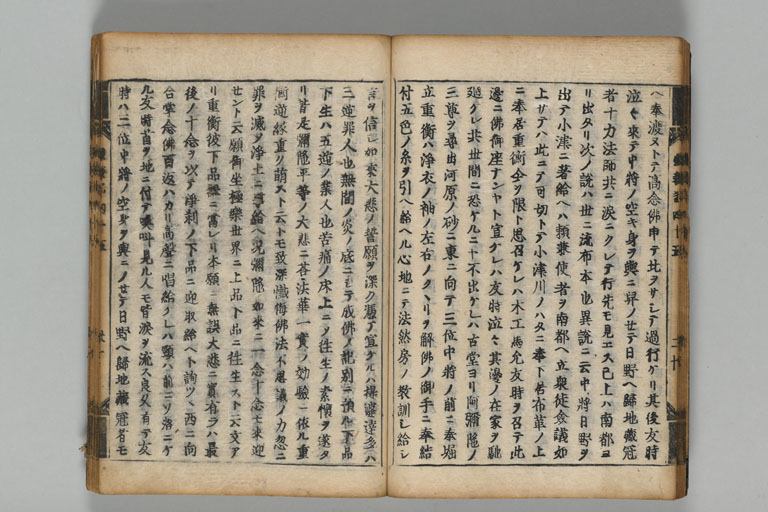 ヘ奉渡ヌトテ高念佛申テ北ヲサシテ過行ケリ其後友時
泣々来テ中将ノ空キ身ヲ輿ニ舁ノセテ日野ヘ歸地藏冠
者十力法師共ニ涙ニクレテ行先モ見エス已上ハ南都ヨ
リ出タリ次ノ説ハ世ニ流布本也異説ニ云中将日野ヲ
出テ小津ニ著給ヘハ頼兼使者ヲ南都ヘ立衆徒僉議如
上サテハ此ニテ可切トテ小津川ノハタニ奉下苔布革ノ上
ニ奉居重衡今ヲ限ト思召ケレハ木工馬允友時ヲ召テ此
邊ニ佛御座ナンヤト宣ケレハ友時泣々其邊ノ在家ヲ馳
廻グレ共世間ニ恐ケルニヤ不出ケレハ古堂ヨリ阿彌陀ノ
三尊ヲ尋出河原ノ砂ニ東ニ向テ三位中将ノ前ニ奉堀
立重衡ハ浄衣ノ袖ノ左右ノクヽリヲ解佛ノ御手ニ奉結
付五色ノ糸ヲ引ヘ給ヘル心地ニテ法然房ノ教訓シ給シ
言ヲ信已如来大悲ノ誓願ヲ深ク憑テ宣ケルハ提婆達多ハ
三逆罪人也無間ノ炎ノ底ニシテ成佛ノ記別ニ預ル下品
下生ハ五逆ノ業人也苦痛ノ床上ニシテ往生ノ素懐ヲ遂タ
リ皆是彌陀平等ノ大悲ニ答法華一實ノ効驗ニ依ル重
衡逆縁重ク萌スト云トモ致深懺悔佛法不思議ノ力忽ニ
罪ヲ滅ノ浄土ニ導給ヘ况彌陀如来ニ一念十念モ来迎
セント云願御坐極樂世界ニ上品下品ニ往生スト云文ア
リ重衡彼下品ニ當レリ本願無誤大悲ニ實有ラハ最
後ノ十念ヲ以テ浄刹ノ下品ニ迎取給ヘト詢ツヽ西ニ向
合掌念佛百返ハカリ高聲ニ唱給ケレハ頸ハ前ニソ落ニケ
ル友時首ヲ地ニ付テ喚叫見ル人モ皆涙ヲ流ス良久有テ友
時ハ三位中将ノ空身ヲ輿ニノセテ日野ヘ歸地藏冠者モ